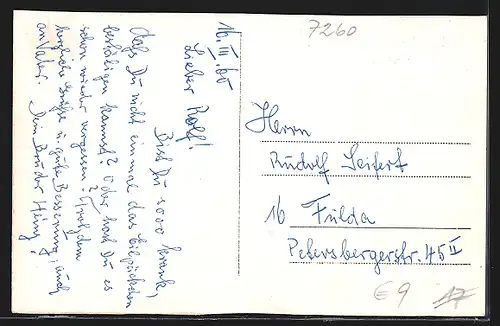 16.III.60
Lieber Rolf!
Bist Du sooo krank,
daß Du nicht einmal das Eilpäckchen
bestätigen kannst? Oder hast Du es
schon wieder vergessen? Trotzdem
herzliche Grüße u. gute Besserung, auch
an Vater. Dein Bruder Heinz!
7260
Herrn
Rudolf Seifert
16 Fulda
Petersbergerstr. 45 II
E9